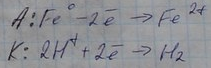 A: Fe⁰ - 2ē → Fe²⁺
K: 2H⁺ + 2ē → H₂